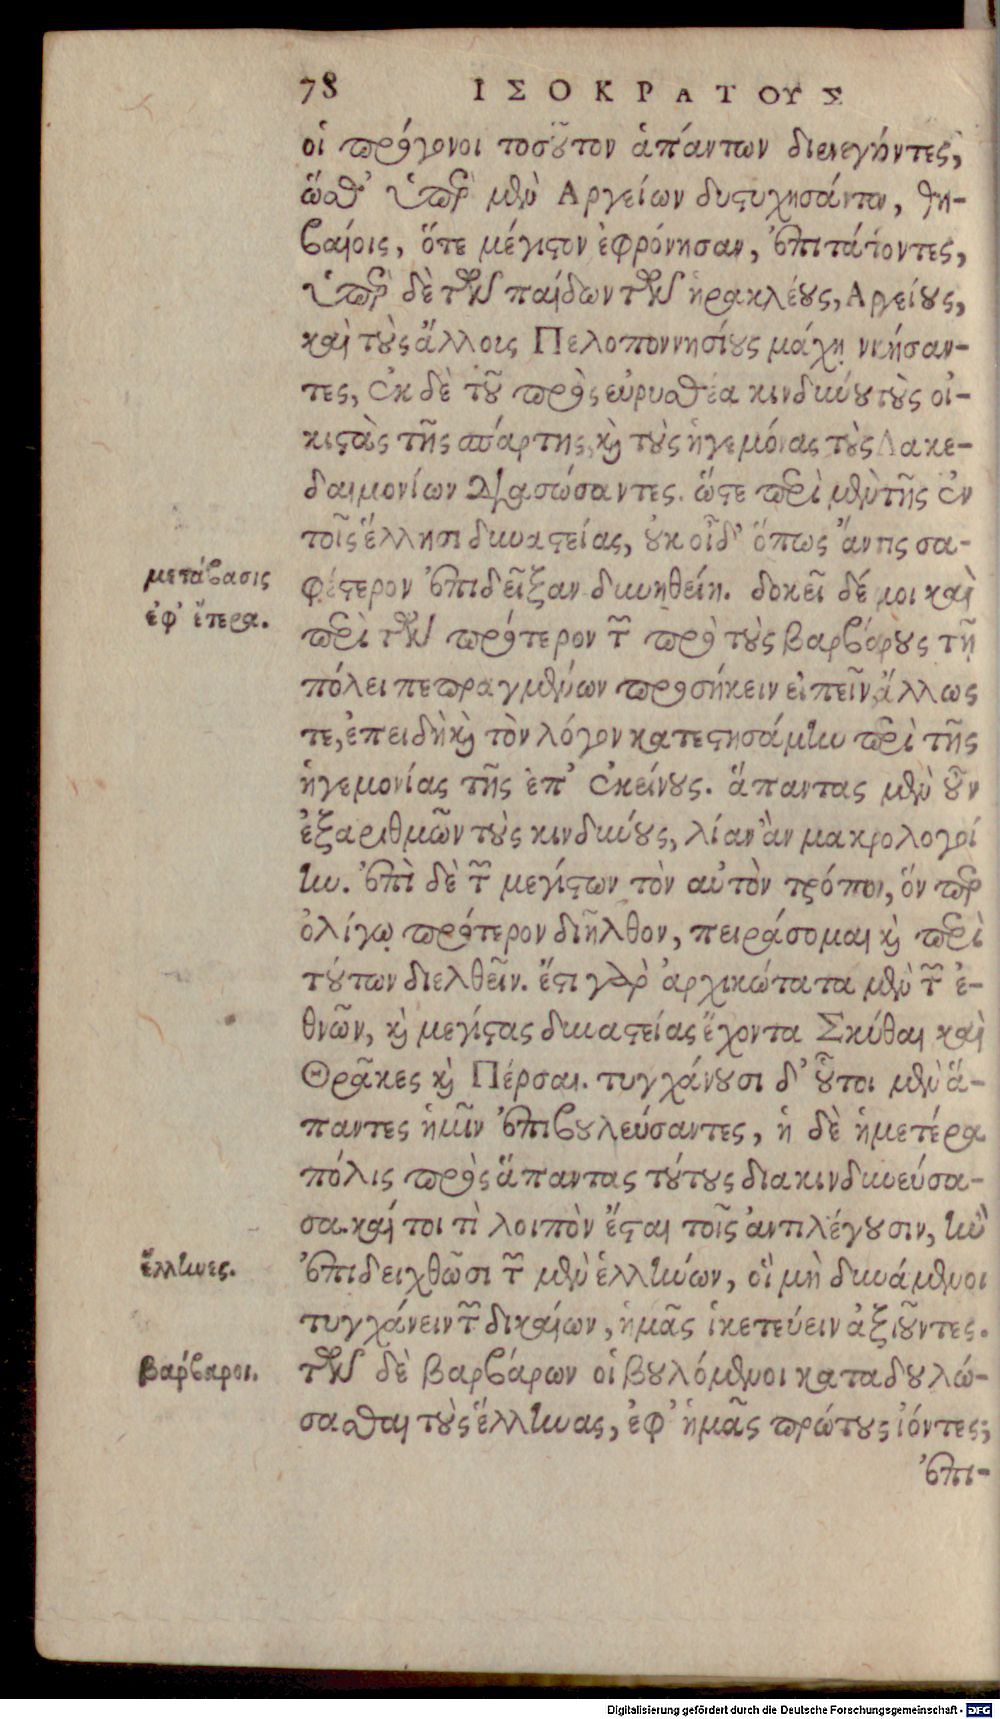 78 ΙΣΟΚΡΑΤΟΥΣ
οἱ πρόγονοι τοσοῦτον ἁπάντων διενεγκόντες,
ὥσθ' ὑπὲρ μὲν Αργείων δυςυχησάντων, Θη-
βαίοις, ὅτε μέγιςον ἐφρόνησαν, ἐπιτάττοντες,
ὑπὲρ δὲ τῶν παίδων τῶν ἡρακλέους, Αργείους,
καὶ τοὺς ἄλλους Πελοποννησίους μάχῃ νικήσαν-
τες, ἐκ δὲ τοῦ πρὸς εὐρυσθέα κινδύνου τοὺς οἰ-
κιςὰς τῆς σπάρτης, καὶ τοὺς ἡγεμόνας τοὺς Λακε-
δαιμονίων διασώσαντες. ὥςε περὶ μὲν τῆς ἐν
τοῖς ἕλλησι δυναςείας, οὐκ οἶδ' ὅπως ἄν τις σα-
φέςερον ἐπιδεῖξαι δυνηθείη. δοκεῖ δέ μοι καὶ
μετάβασις
ἐφ' ἕτερα.
περὶ τῶν πρότερον τῶν πρὸς τοὺς βαρβάρους τῇ
πόλει πεπραγμένων προσήκειν εἰπεῖν, ἄλλως
τε, ἐπειδὴ καὶ τὸν λόγον κατεςησάμην περὶ τῆς
ἡγεμονίας τῆς ἐπ' ἐκείνους. ἅπαντας μὲν οὖν
ἐξαριθμῶν τοὺς κινδύνους, λίαν ἂν μακρολογοί
ην. ἐπὶ δὲ τῶν μεγίςων τὸν αὐτὸν τρόπον, ὅν περ
ὀλίγῳ πρότερον διῆλθον, πειράσομαι καὶ περὶ
τούτων διελθεῖν. ἔςι γὰρ ἀρχικώτατα μὲν τῶν ἐ-
θνῶν, καὶ μεγίςας δυναςείας ἔχοντα Σκύθαι καὶ
Θρᾶκες καὶ Πέρσαι. τυγχάνουσι δ' οὗτοι μὲν ἅ-
παντες ἡμῖν ἐπιβουλεύσαντες, ἡ δὲ ἡμετέρα
πόλις πρὸς ἅπαντας τούτους διακινδυνεύσα-
σα. καίτοι τὶ λοιπὸν ἔςαι τοῖς ἀντιλέγουσιν, ἢν
ἕλληνες.
ἐπιδειχθῶσι τῶν μὲν ἑλλήνων, οἳ μὴ δυνάμενοι
τυγχάνειν τῶν δικαίων, ἡμᾶς ἱκετεύειν ἀξιοῦντες.
βάρβαροι.
τῶν δὲ βαρβάρων οἱ βουλόμενοι καταδουλώ-
σασθαι τοὺς ἕλληνας, ἐφ' ἡμᾶς πρώτους ἰόντες;
ἐπι-
Digitalisierung gefördert durch die Deutsche Forschungsgemeinschaft - DFG